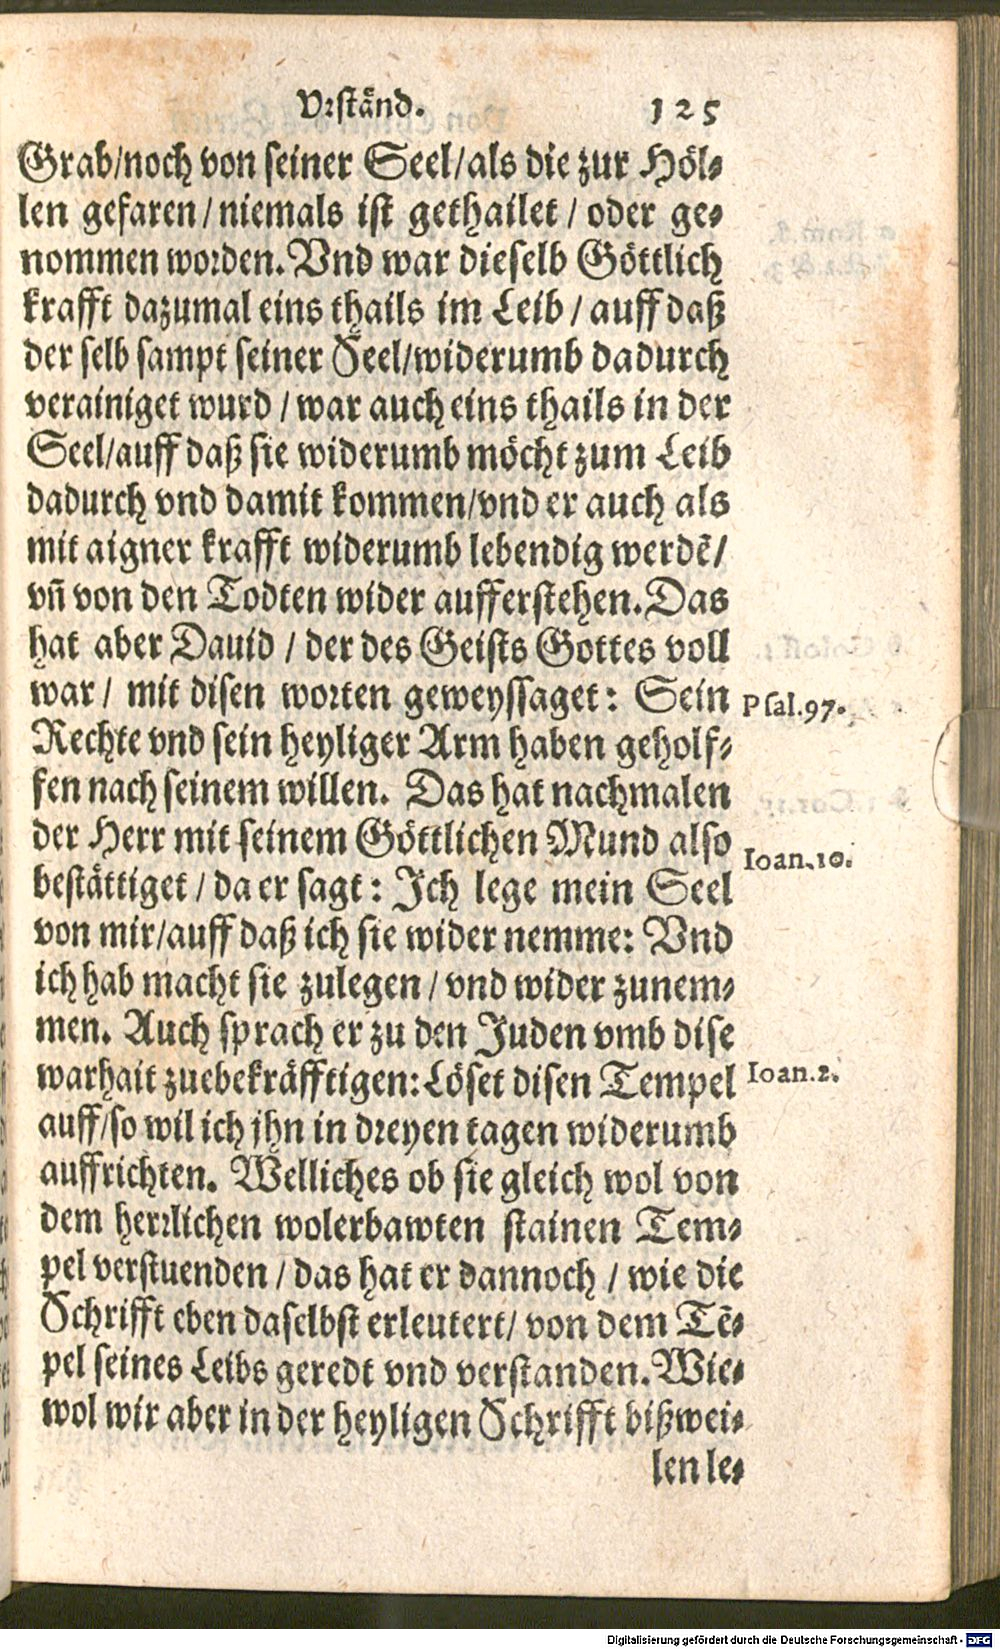 Vrständ. 125
Grab/noch von seiner Seel/als die zur Höl-
len gefaren / niemals ist gethailet / oder ge-
nommen worden. Vnd war dieselb Göttlich
krafft dazumal eins thails im Leib / auff daß
der selb sampt seiner Seel/widerumb dadurch
verainiget wurd / war auch eins thails in der
Seel/auff daß sie widerumb möcht zum Leib
dadurch vnd damit kommen/vnd er auch als
mit aigner krafft widerumb lebendig werdẽ/
vñ von den Todten wider aufferstehen. Das
hat aber Dauid / der des Geists Gottes voll
war / mit disen worten geweyssaget: Sein Psal.97.
Rechte vnd sein heyliger Arm haben geholf-
fen nach seinem willen. Das hat nachmalen
der Herr mit seinem Göttlichen Mund also Ioan.10.
bestättiget / da er sagt: Ich lege mein Seel
von mir/auff daß ich sie wider nemme: Vnd
ich hab macht sie zulegen / vnd wider zunem-
men. Auch sprach er zu den Juden vmb dise
warhait zuebekräfftigen: Löset disen Tempel Ioan.2.
auff/so wil ich jhn in dreyen tagen widerumb
auffrichten. Welliches ob sie gleich wol von
dem herrlichen wolerbawten stainen Tem-
pel verstuenden / das hat er dannoch / wie die
Schrifft eben daselbst erleutert/ von dem Tẽ-
pel seines Leibs geredt vnd verstanden. Wie-
wol wir aber in der heyligen Schrifft bißwei-
len le-
Digitalisierung gefördert durch die Deutsche Forschungsgemeinschaft - DFG